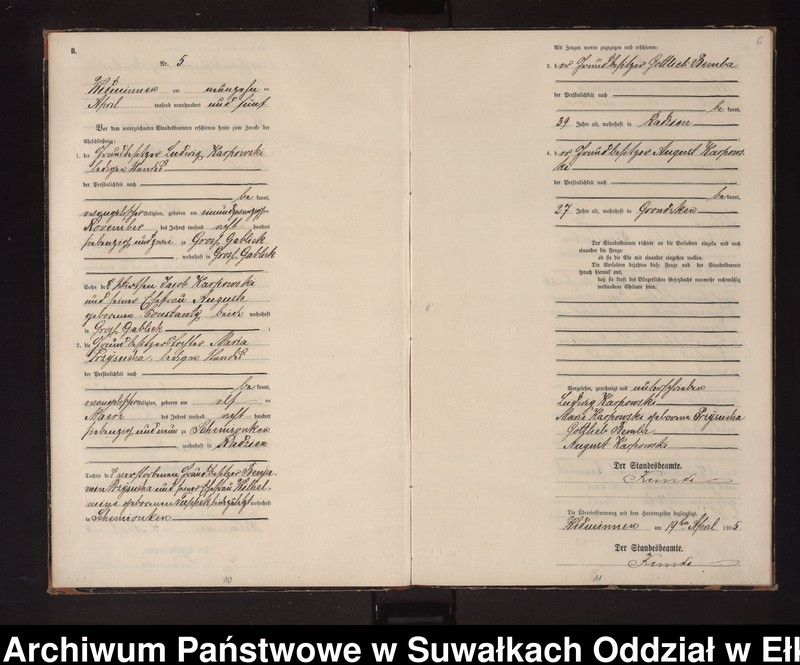 B.
Nr. 5
Widminnen am neunzehn ten
April tausend neunhundert und fünf
Vor dem unterzeichneten Standesbeamten erschienen heute zum Zwecke der
Eheschließung:
1. der Grundbesitzer Ludwig Karpowski
ledigen Standes
der Persönlichkeit nach
be kannt,
evangelischer Religion, geboren am
November des Jahres tausend acht hundert
siebenzig und zwei zu Gross Gablick
, wohnhaft in Gross Gablick
Sohn des Jacob Karpowski
und seiner Ehefrau Auguste
geborenen Constanty beide wohnhaft
in Gross Gablick ;
2. die Grundbesitzertochter Maria
Przysucha, ledigen Standes
der Persönlichkeit nach
be kannt,
evangelischer Religion, geboren am elf ten
Maerz des Jahres tausend acht hundert
siebenzig und neun zu Schemionken
, wohnhaft in Radzien
Tochter des verstorbenen Grundbesitzer Benja-
min Przysucha und seiner Ehefrau Wilhel-
mine geborenen zuletzt wohnhaft
in Schemionken
10
6
Als Zeugen waren zugezogen und erschienen:
3. der Grundbesitzer Gottlieb Bemba
der Persönlichkeit nach
be kannt,
39 Jahre alt, wohnhaft in Radzien
4. der Grundbesitzer August Karpows-
ki
der Persönlichkeit nach
be kannt,
27 Jahre alt, wohnhaft in Grondzken
Der Standesbeamte richtete an die Verlobten einzeln und nach
einander die Frage:
ob sie die Ehe mit einander eingehen wollen.
Die Verlobten bejahten diese Frage und der Standesbeamte
sprach hierauf aus,
daß sie kraft des Bürgerlichen Gesetzbuchs nunmehr rechtmäßig
verbundene Eheleute seien.
Vorgelesen, genehmigt und unterschrieben
Ludwig Karpowski
Marie Karpowski geborene Przysucha
Gottlieb Bemba
August Karpowski
Der Standesbeamte.
Die Übereinstimmung mit dem Hauptregister beglaubigt.
Widminnen am 19ten April 1905
Der Standesbeamte.
11
Archiwum Państwowe w Suwałkach Oddział w Ełk